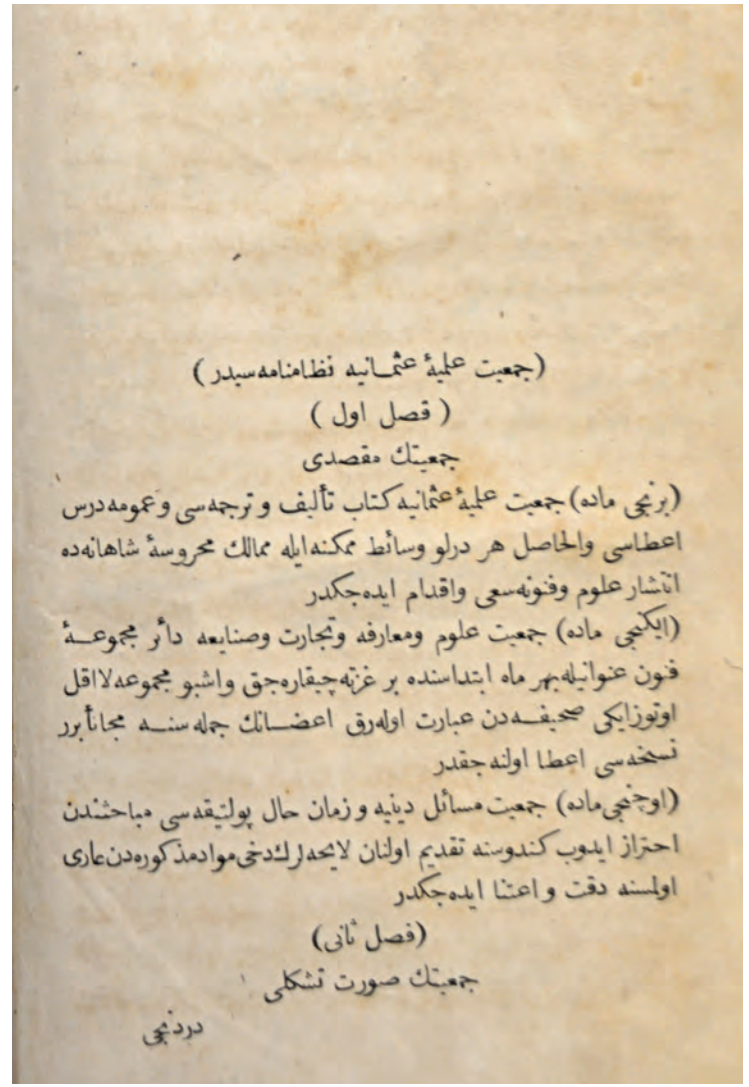 (جمعیت علمیهٔ عثمـانیه نظامنامه‌سیدر)
( فصل اول )
جمعیتك مقصدی
(برنجی ماده) جمعیت علمیهٔ عثمانیه كتاب تألیف و ترجمه‌سی و عمومه درس
اعطاسی والحاصل هر درلو وسائط ممكنه ایله ممالك محروسهٔ شاهانه‌ده
انتشار علوم وفنونه سعی واقدام ایده‌جكدر
(ایكنجی ماده) جمعیت علوم ومعارفه وتجارت وصنایعه دائر مجموعـهٔ
فنون عنوانیله بهر ماه ابتداسنده بر غزته چیقاره‌جق واشبو مجموعه لااقل
اوتوزایكی صحیفـه‌دن عبارت اوله‌رق اعضـانك جمله‌سنـه مجاناً برر
نسخه‌سی اعطا اولنه‌جقدر
(اوچنجی ماده) جمعیت مسائل دینیه و زمان حال پولتیقه‌سی مباحثندن
احتراز ایدوب كندوسنه تقدیم اولنان لایحه‌لرك دخی مواد مذكوره‌دن عاری
اولمسنه دقت و اعتنا ایده‌جكدر
(فصل ثانی)
جمعیتك صورت تشكلی
دردنجی